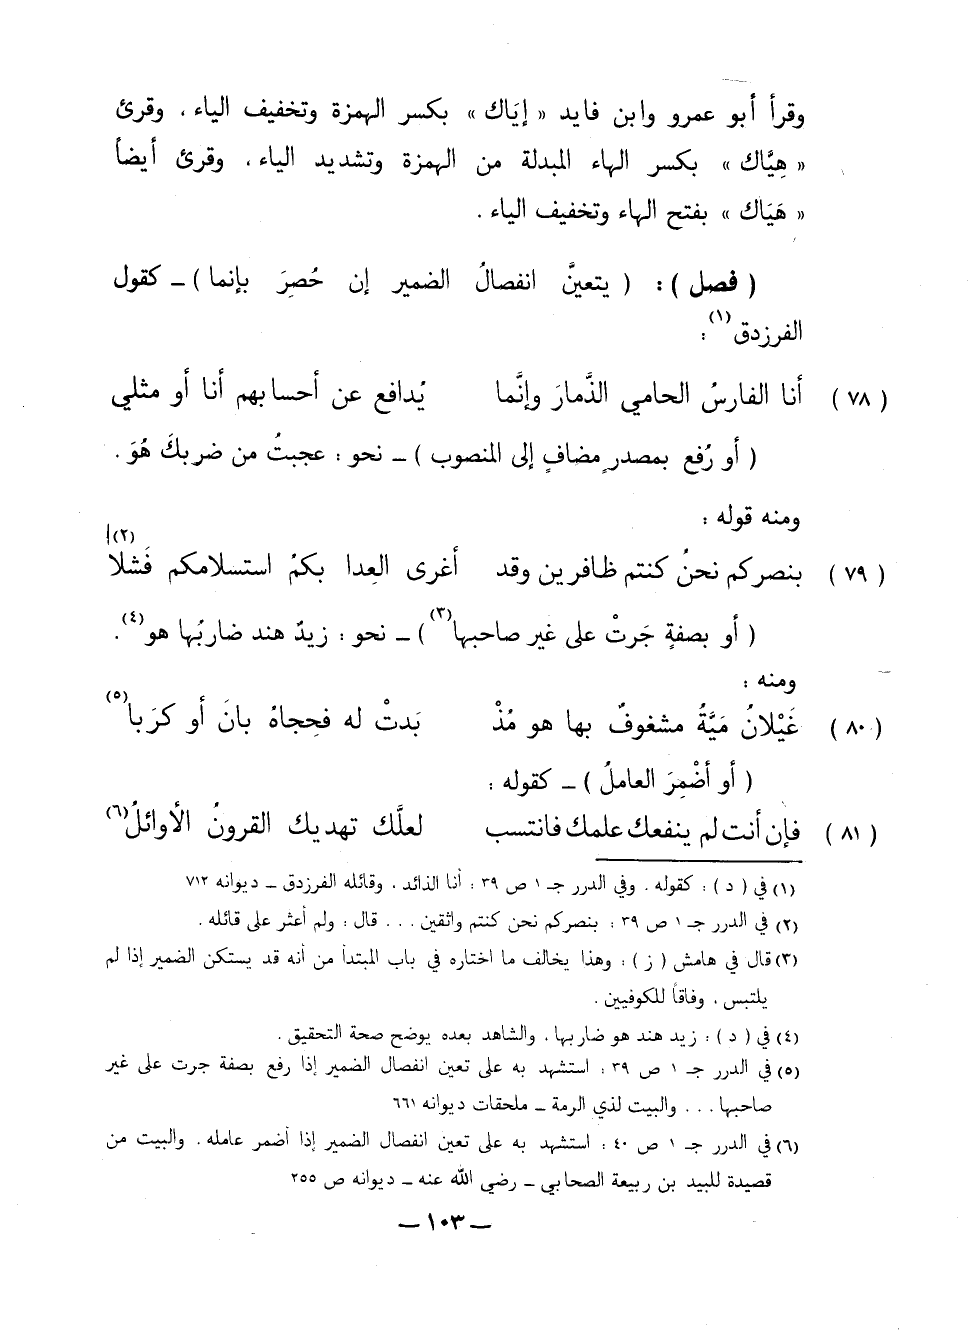 وقرأ أبو عمرو وابن فايد « إيَاك » بكسر الهمزة وتخفيف الياء ، وقرئ
« هِيَّاك » بكسر الهاء المبدلة من الهمزة وتشديد الياء ، وقرئ أيضاً
« هَيَاك » بفتح الهاء وتخفيف الياء .
( فصل ) : ( يتعينَّ انفصالُ الضمير إن حُصِرَ بإنما ) ــ كقول
الفرزدق(١) :
( ٧٨ ) أنا الفارسُ الحامي الذَّمارَ وإنَّما يُدافع عن أحسابهم أنا أو مثلي
( أو رُفع بمصدرٍ مضافٍ إلى المنصوب ) ــ نحو : عجبتُ من ضربكَ هُوَ .
ومنه قوله :
( ٧٩ ) بنصركم نحنُ كنتم ظافرين وقد أغرى العِدا بكمُ استسلامكم فَشلا(٢)
( أو بصفةٍ جَرتْ على غير صاحبها(٣) ) ــ نحو : زيدٌ هند ضاربُها هو(٤).
ومنه :
( ٨٠ ) غَيْلانُ مَيَّةُ مشغوفٌ بها هو مُذْ بَدتْ له فحِجاهُ بانَ أو كرَبا(٥)
( أو أضْمِرَ العاملُ ) ــ كقوله :
( ٨١ ) فإن أنت لم ينفعك علمك فانتسب لعلَّك تهديك القرونُ الأوائلُ(٦)
(١) في ( د ) : كقوله . وفي الدرر جـ ١ ص ٣٩ : أنا الذائد . وقائله الفرزدق ــ ديوانه ٧١٢
(٢) في الدرر جـ ١ ص ٣٩ : بنصركم نحن كنتم واثقين . . . قال : ولم أعثر على قائله .
(٣) قال في هامش ( ز ) : وهذا يخالف ما اختاره في باب المبتدأ من أنه قد يستكن الضمير إذا لم
يلتبس ، وفاقاً للكوفيين .
(٤) في ( د ) : زيد هند هو ضاربها ، والشاهد بعده يوضح صحة التحقيق .
(٥) في الدرر جـ ١ ص ٣٩ : استشهد به على تعين انفصال الضمير إذا رفع بصفة جرت على غير
صاحبها . . . والبيت لذي الرمة ــ ملحقات ديوانه ٦٦١
(٦) في الدرر جـ ١ ص ٤٠ : استشهد به على تعين انفصال الضمير إذا أضمر عامله . والبيت من
قصيدة للبيد بن ربيعة الصحابي ــ رضي الله عنه ــ ديوانه ص ٢٥٥
ــ ١٠٣ ــ